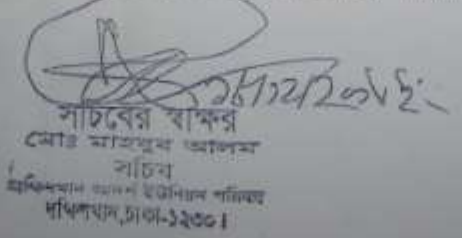 সচিবের স্বাক্ষর
মোঃ মাহবুব আলম
সচিব
দক্ষিণখান আদর্শ ইউনিয়ন পরিষদ
দক্ষিণখান, ঢাকা-১২৩০।